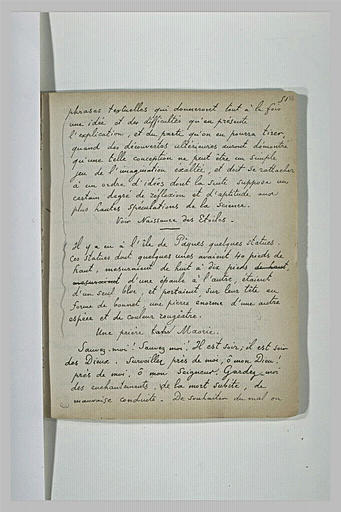 phrases textuelles qui donneront tout à la fois
une idée et des difficultés qu'en présente
l'explication, et du parti qu'on en pourra tirer,
quand des découvertes ultérieures auront démontré
qu'une telle conception ne peut être un simple
jeu de l'imagination exaltée, et doit se rattacher
à un ordre d'idées dont la suite suppose un
certain degré de réflexion et d'aptitude aux
plus hautes spéculations de la Science.
Voir Naissance des Etoiles.
Il y a eu à l'île de Pâques quelques statues.
Ces statues dont quelques unes avaient 40 pieds de
haut, mesuraient de huit à dix pieds
d'une épaule à l'autre, étaient
d'un seul bloc, et portaient sur leur tête en
forme de bonnet, une pierre énorme d'une autre
espèce et de couleur rougeâtre.
Une prière Maorie.
Sauvez-moi! Sauvez moi! Il est soir, il est soir
des Dieux. Surveillez près de moi, ô mon Dieu!
près de moi, ô mon Seigneur! Gardez-moi
des enchantements, de la mort subite, de
mauvaise conduite. De souhaiter du mal ou